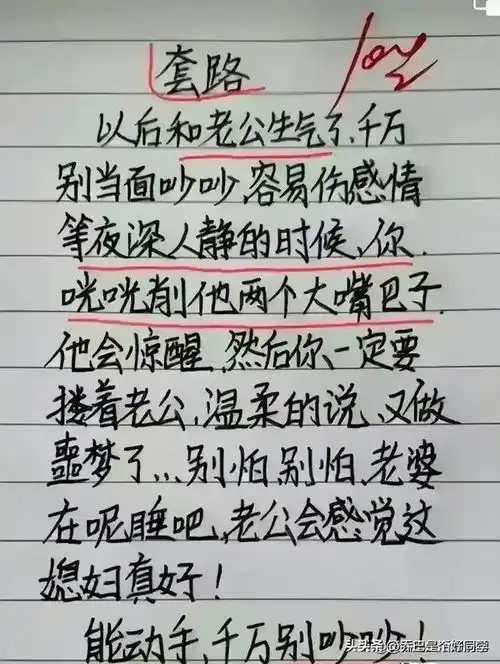 套路
以后和老公生气了、千万
别当面吵吵、容易伤感情
等夜深人静的时候、你、
咣咣削他两个大嘴巴子、
他会惊醒、然后你一定要
搂着老公、温柔的说、又做
噩梦了...别怕、别怕、老婆
在呢睡吧、老公会感觉这
媳妇真好！
能动手、千万别吵吵！